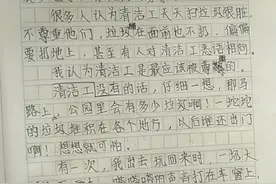 很多人认为清洁工天天扫垃圾很脏
不尊重他们，垃圾在面前也不扔，偏偏
要扔地上，甚至有人对清洁工恶语相向。
我认为清洁工是最应该被尊的。
清洁工没有的话，仔细一想，那马
路上，公园里会有多少垃圾啊！一坨坨
的垃圾堆积在各个地方，以后谁还出门
啊！想想就可怕。
有一次，我出去玩回来时，一场大
的声音打在车窗上，